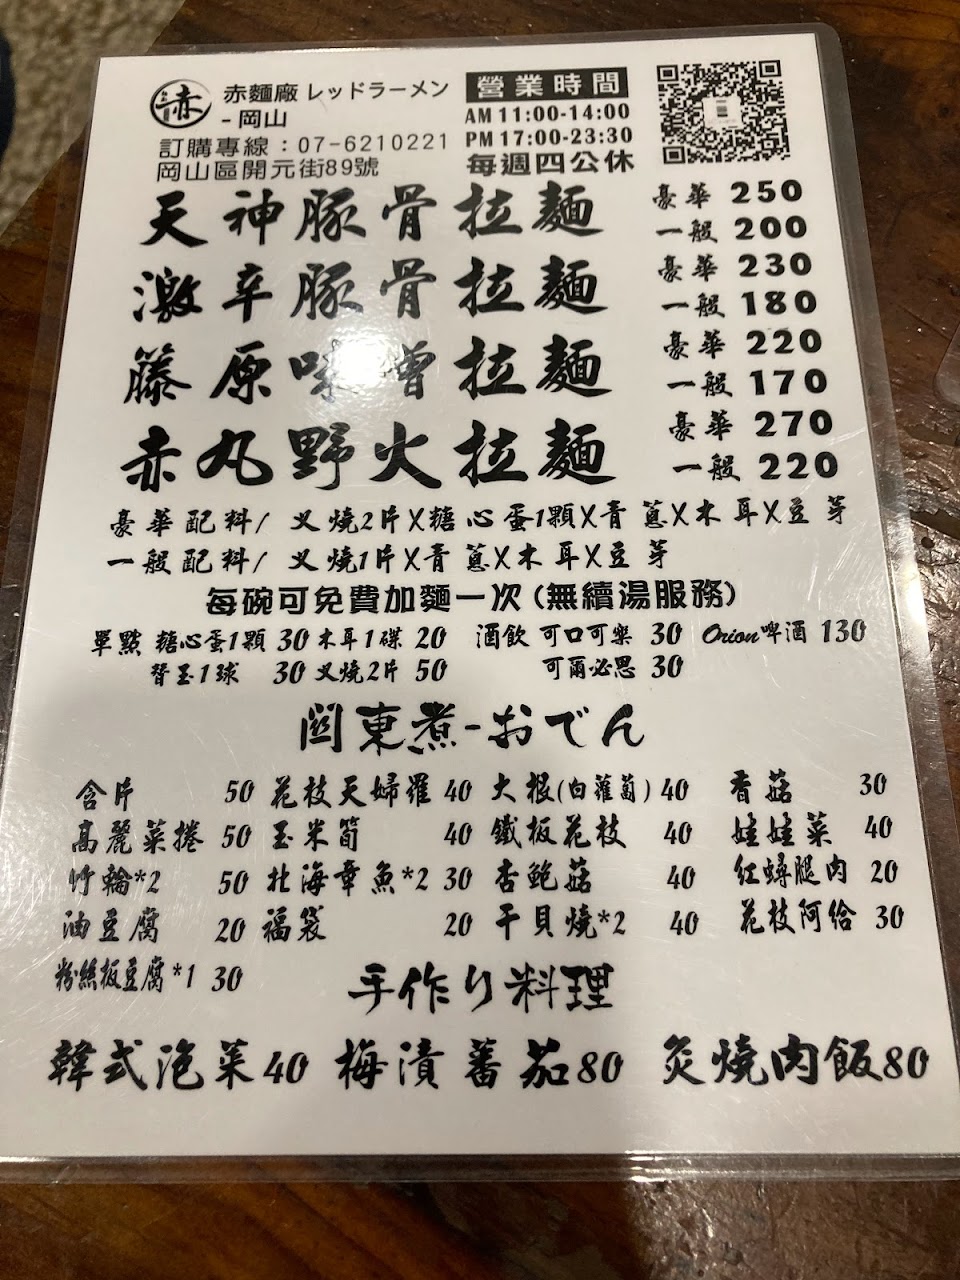 赤麵廠 レッドラーメン
-岡山
訂購專線：07-6210221
岡山區開元街89號
營業時間
AM 11:00-14:00
PM 17:00-23:30
每週四公休
天神豚骨拉麵 豪華 250
一般 200
激辛豚骨拉麵 豪華 230
一般 180
藤原味噌拉麵 豪華 220
一般 170
赤丸野火拉麵 豪華 270
一般 220
豪華配料/ 叉燒2片X糖心蛋1顆X青蔥X木耳X豆芽
一般配料/ 叉燒1片X青蔥X木耳X豆芽
每碗可免費加麵一次(無續湯服務)
單點 糖心蛋1顆 30 木耳1碟 20 酒飲 可口可樂 30 Orion啤酒 130
替玉1球 30 叉燒2片 50 可爾必思 30
関東煮-おでん
含片 50 花枝天婦羅 40 大根(白蘿蔔) 40 香菇 30
高麗菜捲 50 玉米筍 40 鐵板花枝 40 娃娃菜 40
竹輪*2 50 北海章魚*2 30 杏鮑菇 40 紅蟳腿肉 20
油豆腐 20 福袋 20 干貝燒*2 40 花枝阿給 30
粉絲板豆腐*1 30
手作り料理
韓式泡菜40 梅漬蕃茄80 炙燒肉飯80